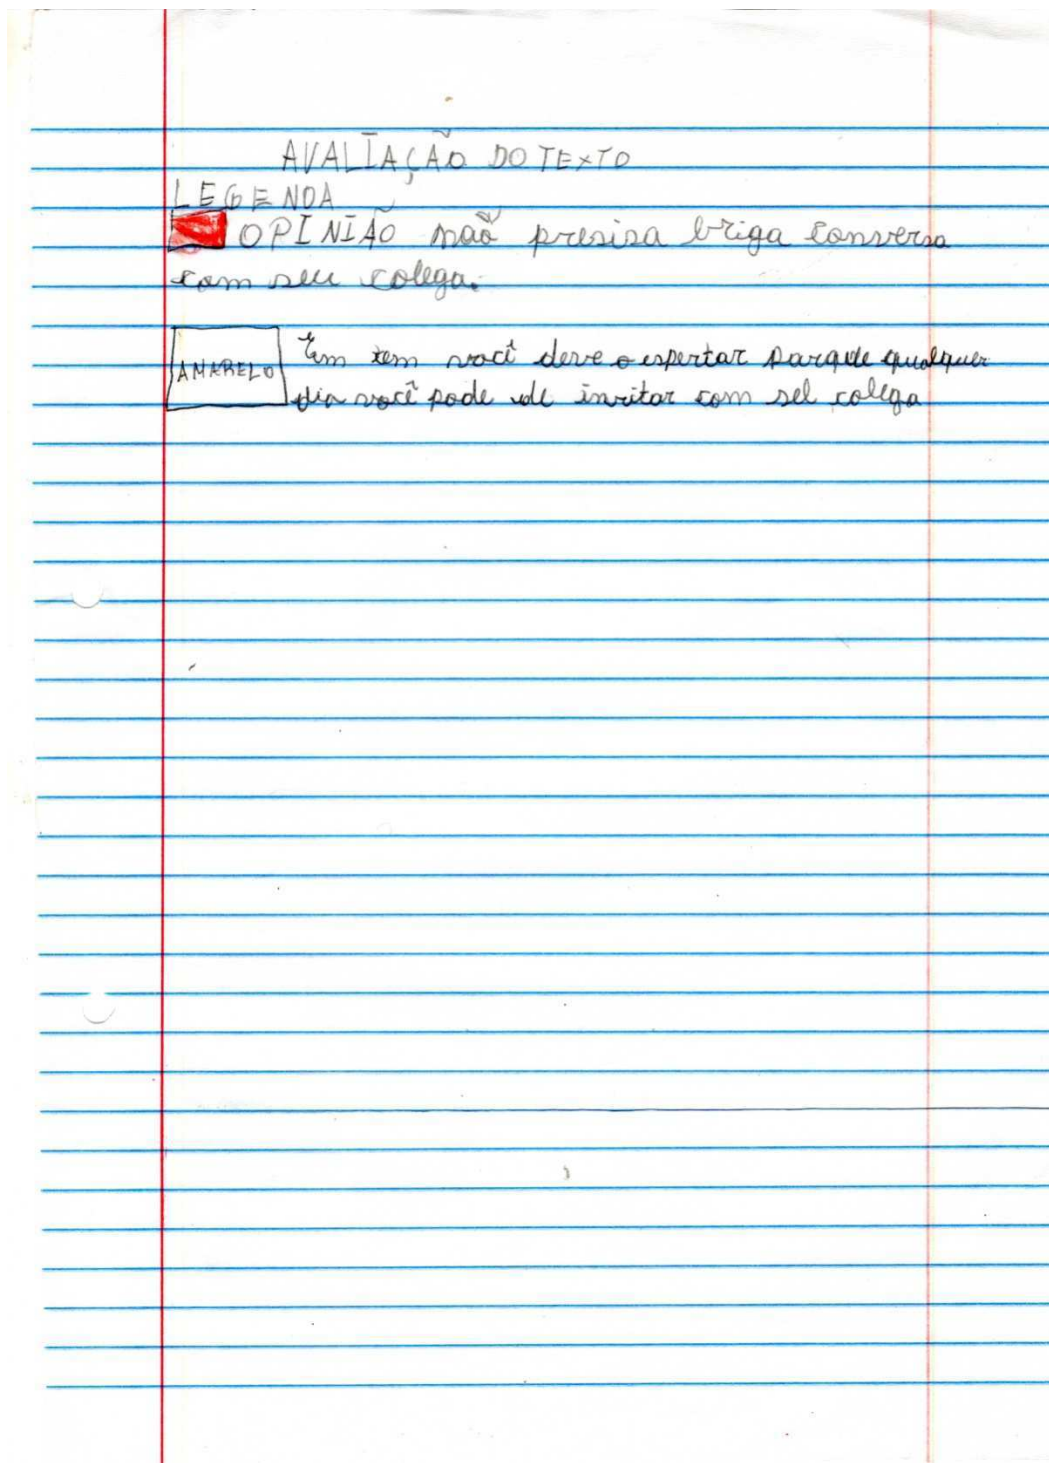 AVALIAÇÃO DO TEXTO
LEGENDA
OPINIÃO não presisa briga conversa
com seu colega.
AMARELO Em tem você deve o espertar parque qualquer
dia você pode de invitar com sel colega